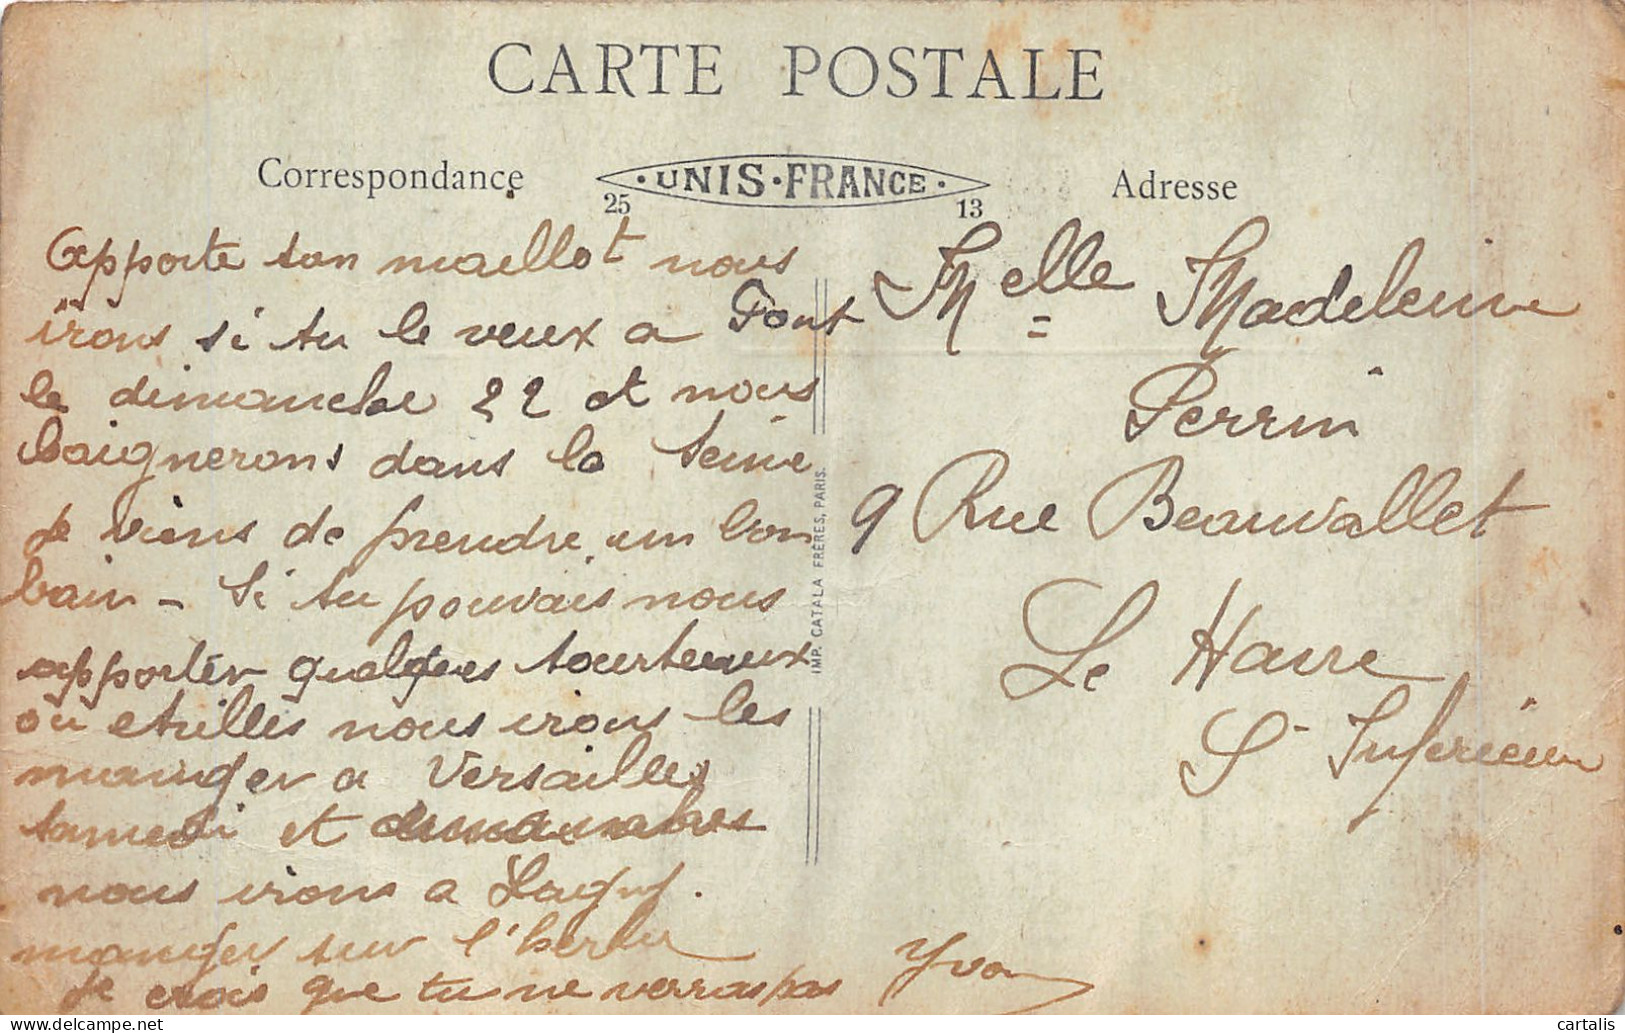 CARTE POSTALE
Correspondance
UNIS·FRANCE
25 13
Adresse
Apporte ton maillot nous
irons si tu le veux a Font
le dimanche 22 et nous
baignerons dans la Seine
Je viens de prendre un bon
bain - Si tu pouvais nous
apporter quelques tourteaux
ou etrilles nous irons les
manger a Versailles
samedi et
nous irons a Lagny.
manger sur l'herbe
Je crois que tu ne verras pas
Yvon
Melle Madeleine
Perrin
9 Rue Beauvallet
Le Havre
S- Inferieure
IMP. CATALA FRÈRES, PARIS.
cartalis